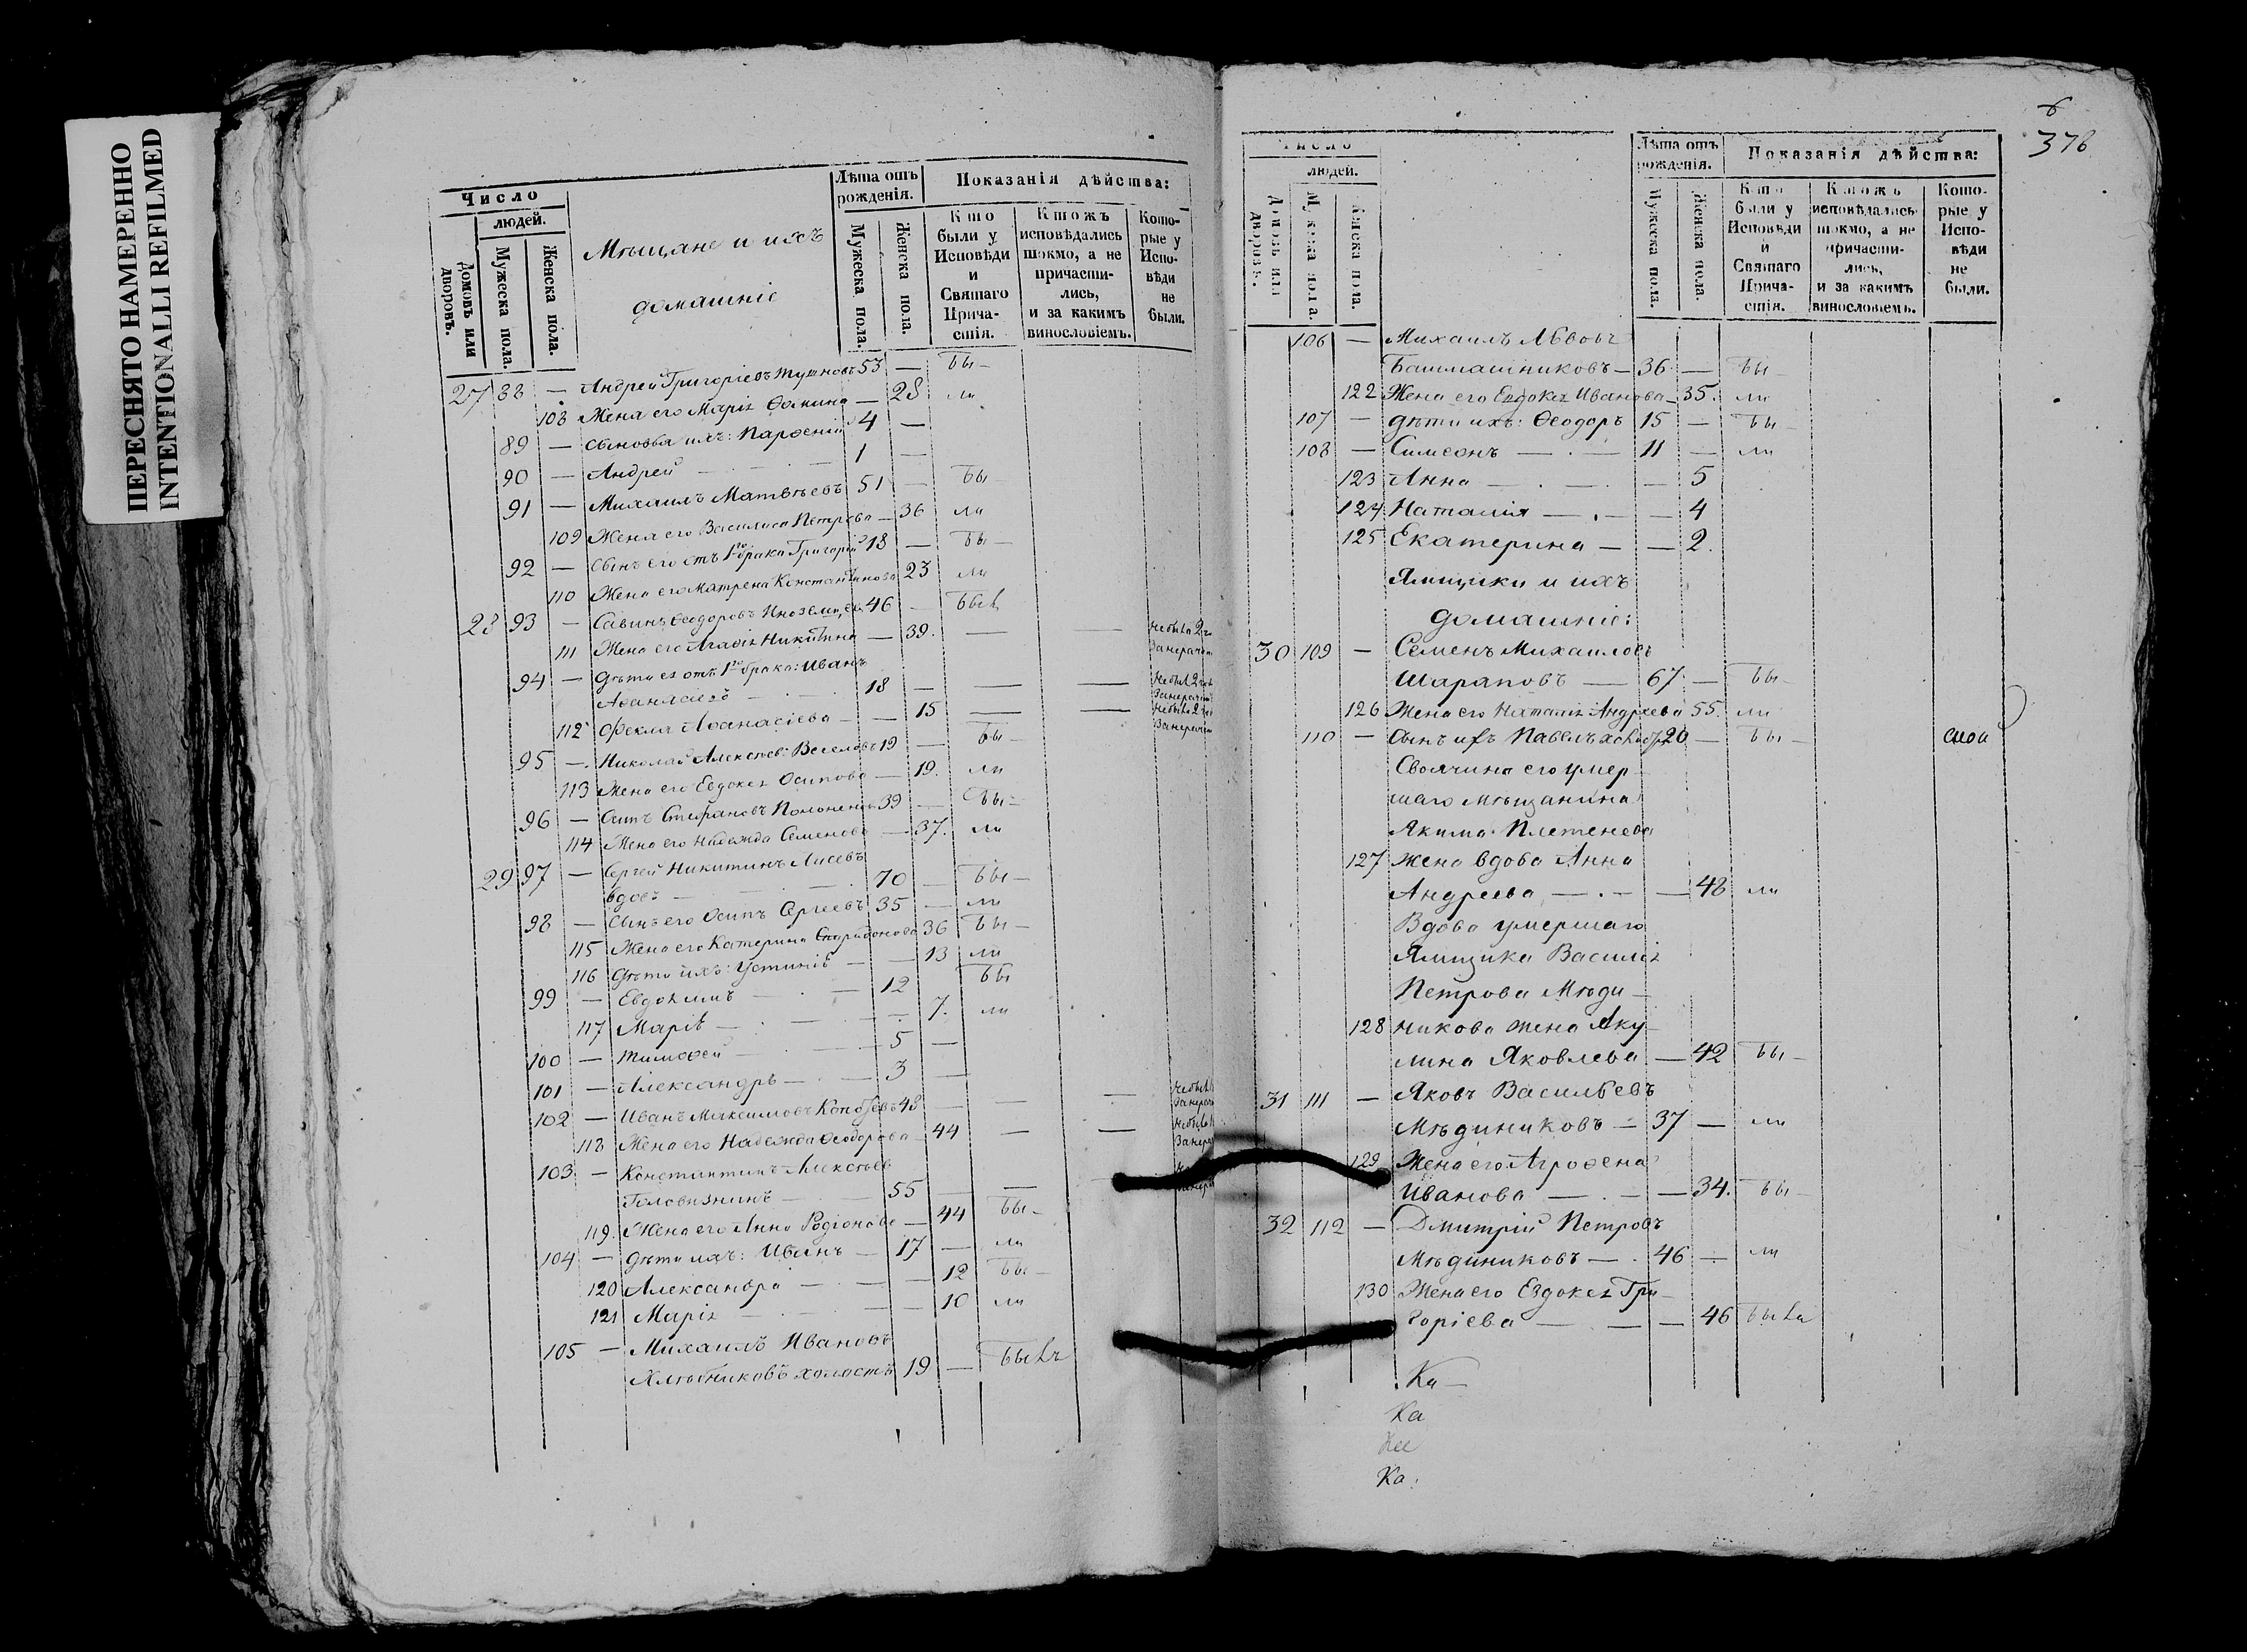 ПЕРЕСНЯТО НАМЕРЕННО
INTENTIONALLI REFILMED
Число
людей.
Домовъ или дворовъ.
Мужеска пола.
Женска пола.
Мѣщане и ихъ
домашніе
Лѣта отъ рожденія.
Мужеска пола.
Женска пола.
Показанія дѣйства:
Кто были у Исповѣди и Святаго Прича-стія.
Ктожъ исповѣдались токмо, а не причасти-лись, и за какимъ винословіемъ.
Кото-рые у Испо-вѣди не были.
27 88 — Андрей Григорьевъ 53 — бы-
108 Жена его Марія Ѳомина — 28 ли
89 — Сыновья ихъ: Парѳеній 4 —
90 — Андрей 1 —
91 — Михаилъ Матвѣевъ 51 — бы
109 Жена его Василиса Петрова — 36 ли
92 — Сынъ его отъ 1го брака Григорій 18 — бы-
110 Жена его Матрена Константинова 23 ли
28 93 — Савинъ Ѳеодоровъ Иноземцевъ 46 — былъ
111 Жена его Агаѳія Никитина — 39. — —
94 — Дѣти ея отъ 1го брака: Иванъ
Аѳанасіевъ 18 — — —
112 Фекла Аѳанасіева — — 15 — —
95 — Николай Алексѣевъ Веселовъ 19 — бы-
113 Жена его Евдокія Осипова — 19. ли
96 — Осипъ Стефановъ 39 — бы-
114 Жена его Надежда Семенова — 37. ли
29 97 — Сергей Никитинъ Лисевъ
вдовъ — 70 — бы-
98 — Сынъ его Осипъ Сергеевъ 35 — ли
115 Жена его Катерина Спиридонова 36 бы-
116 Дѣти ихъ: Устинія — — 13 ли
99 — Евдокимъ — 12 бы
117 Марія — — 7. ли
100 — Тимоѳей — 5 —
101 — Александръ — 3 —
102 — Иванъ Максимовъ 48 — — —
118 Жена его Надежда Ѳеодорова — 44 — —
103 — Константинъ Алексѣевъ
Головизнинъ — 55 — —
119. Жена его Анна Родіонова — 44 бы-
104 — Дѣти ихъ: Иванъ — 17 — ли
120 Александра — — 12 бы-
121 Марія — — 10 ли
105 — Михаилъ Ивановъ
Хлѣбниковъ холостъ 19 — былъ
6
376
Число
людей.
Домовъ или дворовъ.
Мужеска пола.
Женска пола.
Лѣта отъ рожденія.
Мужеска пола.
Женска пола.
Показанія дѣйства:
Кто были у Исповѣди и Святаго Прича-стія.
Ктожъ исповѣдались токмо, а не причасти-лись, и за какимъ винословіемъ.
Кото-рые у Испо-вѣди не были.
106 — Михаилъ Львовъ
Башмашниковъ — 36 — бы-
122 Жена его Евдокія Иванова — 35. ли
107 — Дѣти ихъ: Ѳеодоръ 15 — бы-
108 — Симеонъ — 11 — ли
123 Анна — — 5
124 Наталія — — 4
125 Екатерина — — 2.
Ямщики и ихъ
домашніе:
30 109 — Семенъ Михаиловъ
Шараповъ — 67 — бы-
126 Жена его Наталія Андреева 55. ли
110 — Сынъ ихъ Павелъ 20 — бы-
Своячина его умер-
шаго Мѣщанина
Якима Плетенева
127 Жена вдова Анна
Андреева — — 48 ли
Вдова умершаго
Ямщика Василія
Петрова Мѣди-
128 никова жена Аку-
лина Яковлева — 42 бы-
31 111 — Яковъ Васильевъ
Мѣдиниковъ — 37 — ли
129 Жена его Агрофена
Иванова — — 34. бы-
32 112 — Дмитрій Петровъ
Мѣдиниковъ — 46 — ли
130 Жена его Евдокія Гри-
горіева — — 46 была
Ка-
Ка
Ка.